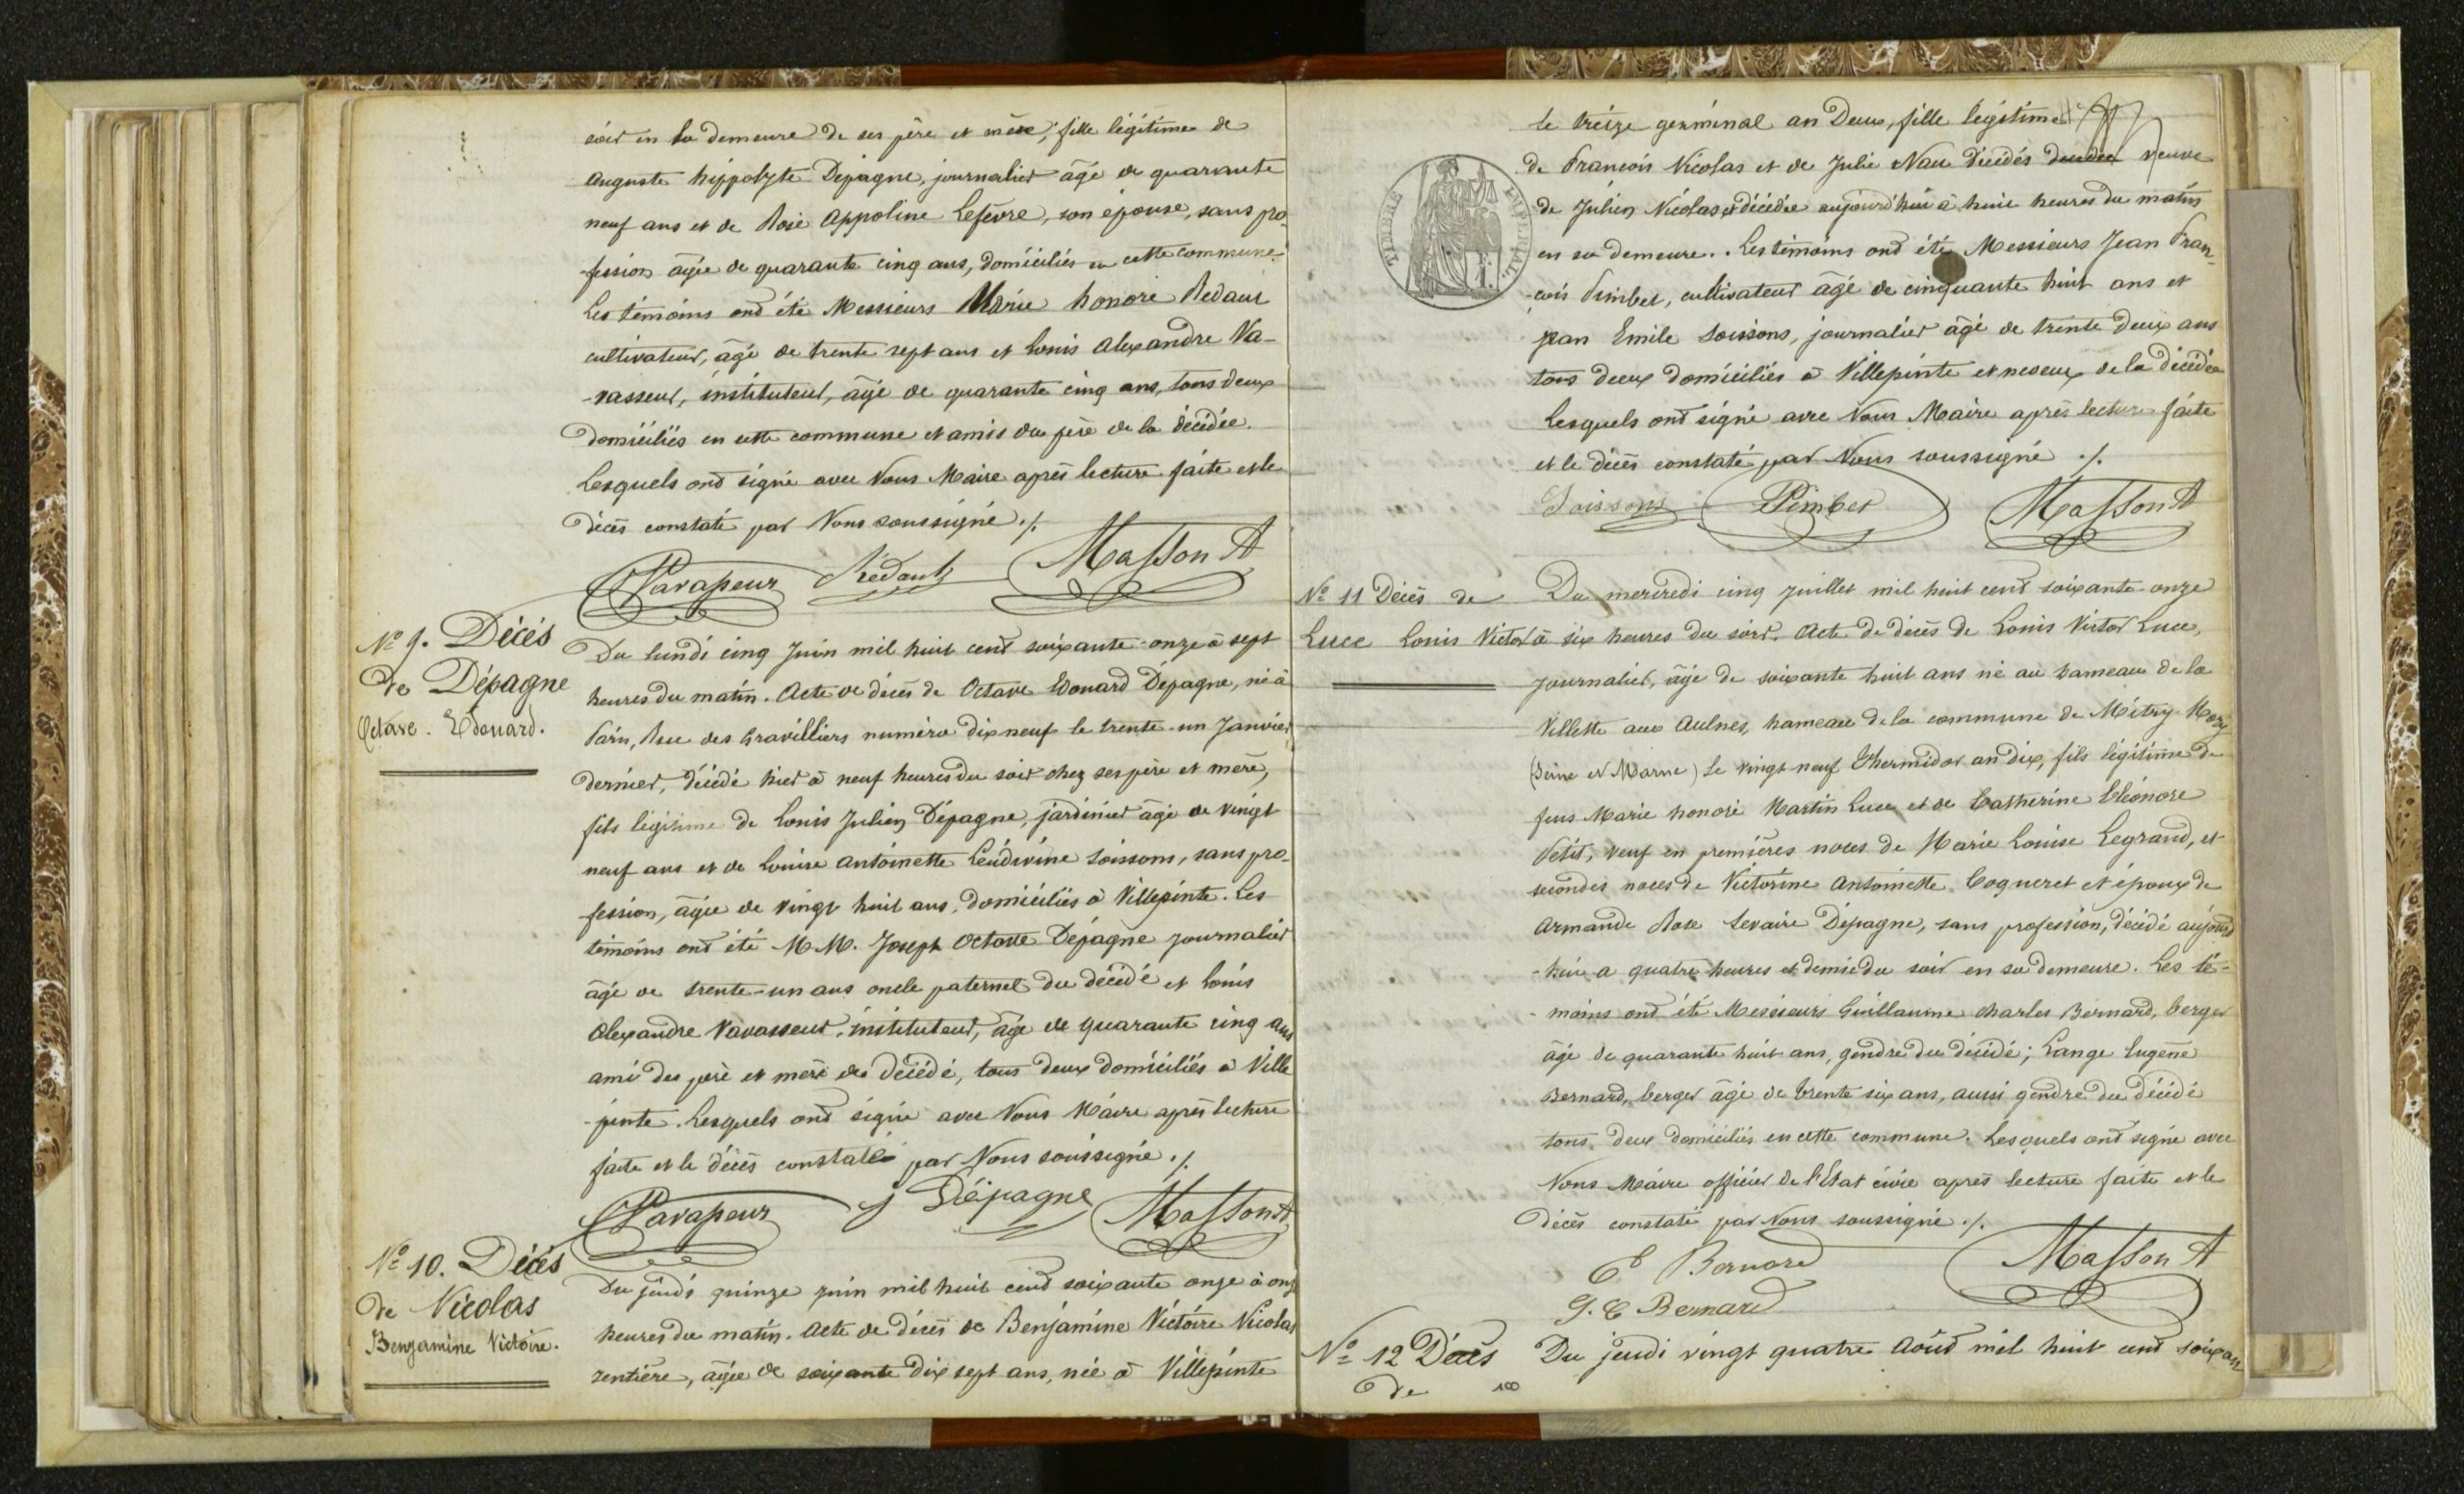 soir en la demeure de ses père et mère, fille légitime de
Auguste hippolyte Dépagne, journalier âgé de quarante
neuf ans et de Rose Appoline Lefèvre, son épouse, sans pro
-fession âgée de quarante cinq ans, domiciliés en cette commune.
Les témoins ont été Messieurs Marie honoré Redaut
cultivateur, âgé de trente sept ans et Louis Alexandre Va-
-vasseur, instituteur, âgé de quarante cinq ans, tous deux
domiciliés en cette commune et amis du père de la décédée.
Lesquels ont signé avec Nous Maire après lecture faite et le
décès constaté par Nous soussigné ./.
Vavasseur Rédaut Masson A
No 9. Décès
de Dépagne
Octave. Edouard.
Du lundi cinq Juin mil huit cent soixante-onze à sept
heures du matin. Acte de décès de Octave Edouard Dépagne, né à
Paris, Rue des Gravilliers numéro dix neuf le trente-un Janvier
dernier, décédé hier à neuf heures du soir chez ses père et mère,
fils légitime de Louis Julien Dépagne, jardinier âgé de vingt
neuf ans et de Louise Antoinette Leudivine Soissons, sans pro-
fession, âgée de vingt huit ans, domiciliés à Villepinte. Les
témoins ont été M.M. Joseph Octave Dépagne journalier
âgé de trente-un ans oncle paternel du décédé et Louis
Alexandre Vavasseur, instituteur, âgé de quarante cinq ans
ami des père et mère du décédé, tous deux domiciliés à Ville
-pinte. Lesquels ont signé avec Nous Maire après lecture
faite et le décès constaté par Nous soussigné ./.
Vavasseur J Dépagne Masson A
No 10. Décès
de Nicolas
Benjamine Victoire.
Du jeudi quinze juin mil huit cent soixante onze à onze
heures du matin. Acte de décès de Benjamine Victoire Nicolas
rentière, âgée de soixante dix sept ans, née à Villepinte
le treize germinal an Deux, fille légitime
de François Nicolas et de Julie Nau décédés decédée veuve
de Julien Nicolas décédée aujourd'hui à huit heures du matin
en sa demeure. Les témoins ont été Messieurs Jean Fran-
-çois Pimber, cultivateur âgé de cinquante huit ans et
Jean Emile Soissons, journalier âgé de trente deux ans
tous deux domiciliés à Villepinte et neveux de la décédée
Lesquels ont signé avec Nous Maire après lecture faite
et le décès constaté par Nous soussigné ./.
TIMBRE IMPERIAL
Soissons Pimber Masson A
No 11 Décès de
Luce Louis Victor
Du mercredi cinq juillet mil huit cent soixante-onze
à six heures du soir. Acte de décès de Louis Victor Luce,
journalier, âgé de soixante huit ans né au hameau de la
Villette aux Aulnes, hameau de la commune de Mitry-Mory
(Seine et Marne) le vingt neuf Thermidor an dix, fils légitime de
feus Marie honoré Martin Luce et de Catherine Eléonore
Petit, veuf en premières noces de Marie Louise Legrand, et
secondes noces de Victorine Antoinette Coqueret et époux de
Armande Rose Dépagne, sans profession, décédé aujourd
-hui a quatre heures et demie du soir en sa demeure. Les té-
-moins ont été Messieurs Guillaume charles Bernard, berger
âgé de quarante huit ans, gendre du décédé; Lange Eugène
Bernard, berger âgé de trente six ans, aussi gendre du décédé
tous deux domiciliés en cette commune. Lesquels ont signé avec
Nous Maire officier de l'Etat civil après lecture faite et le
décès constaté par Nous soussigné ./.
Bernard Masson A
G. C Bernard
No 12 Décès
de 100
Du jeudi vingt quatre Août mil huit cent soixan